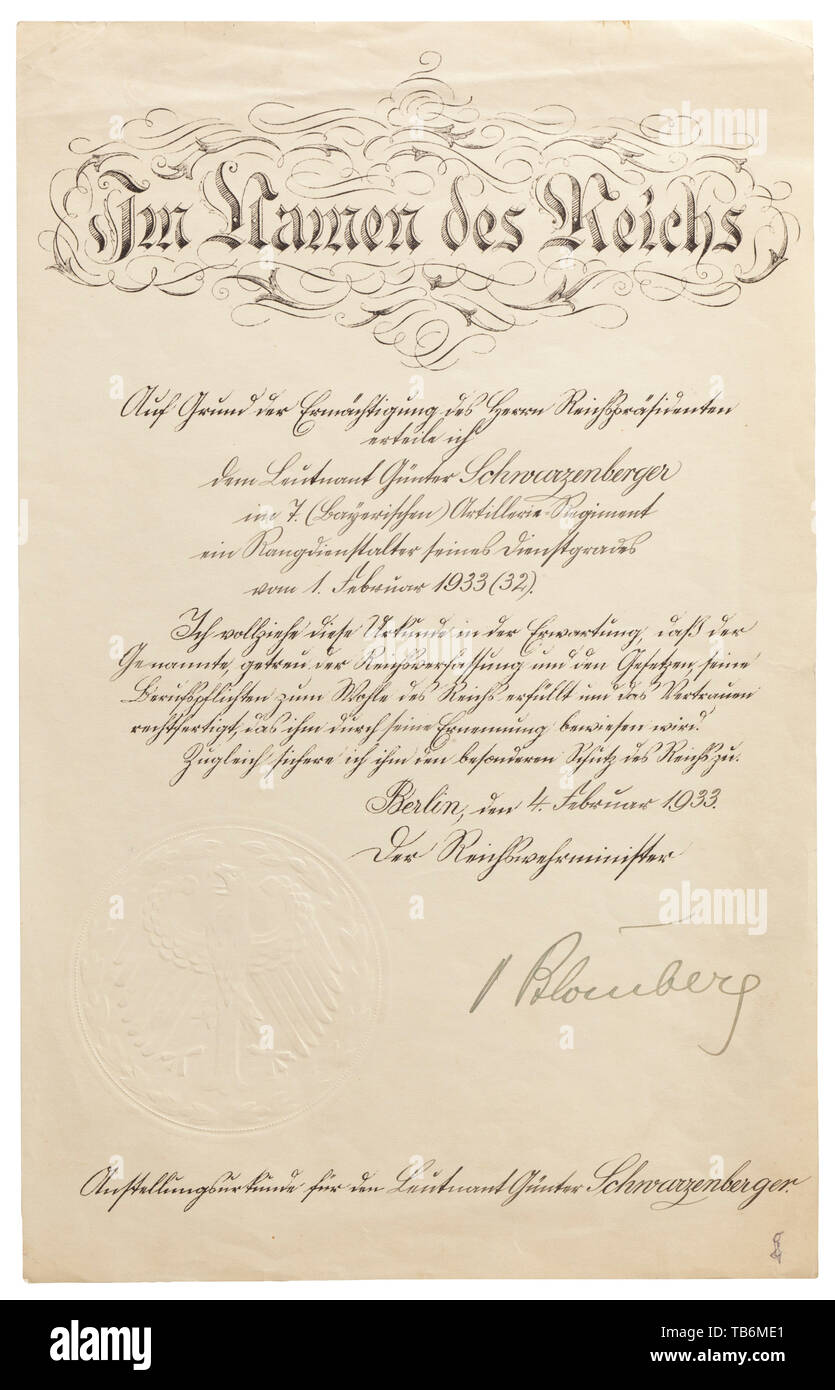 Im Namen des Reichs
Auf Grund der Ermächtigung des Herrn Reichspräsidenten
erteile ich
dem Leutnant Günter Schwarzenberger
im 7. (Bayerischen) Artillerie-Regiment
ein Rangdienstalter seines Dienstgrades
vom 1. Februar 1933 (32).
Ich vollziehe diese Urkunde in der Erwartung, daß der
Genannte, getreu der Reichsverfassung und den Gesetzen, seine
Berufspflichten zum Wohle des Reichs erfüllt und das Vertrauen
rechtfertigt, das ihm durch seine Ernennung bewiesen wird.
Zugleich sichere ich ihm den besonderen Schutz des Reichs zu.
Berlin, den 4. Februar 1933.
Der Reichswehrminister
v Blomberg
Anstellungsurkunde für den Leutnant Günter Schwarzenberger.
alamy
Image ID: TB6ME1
www.alamy.com